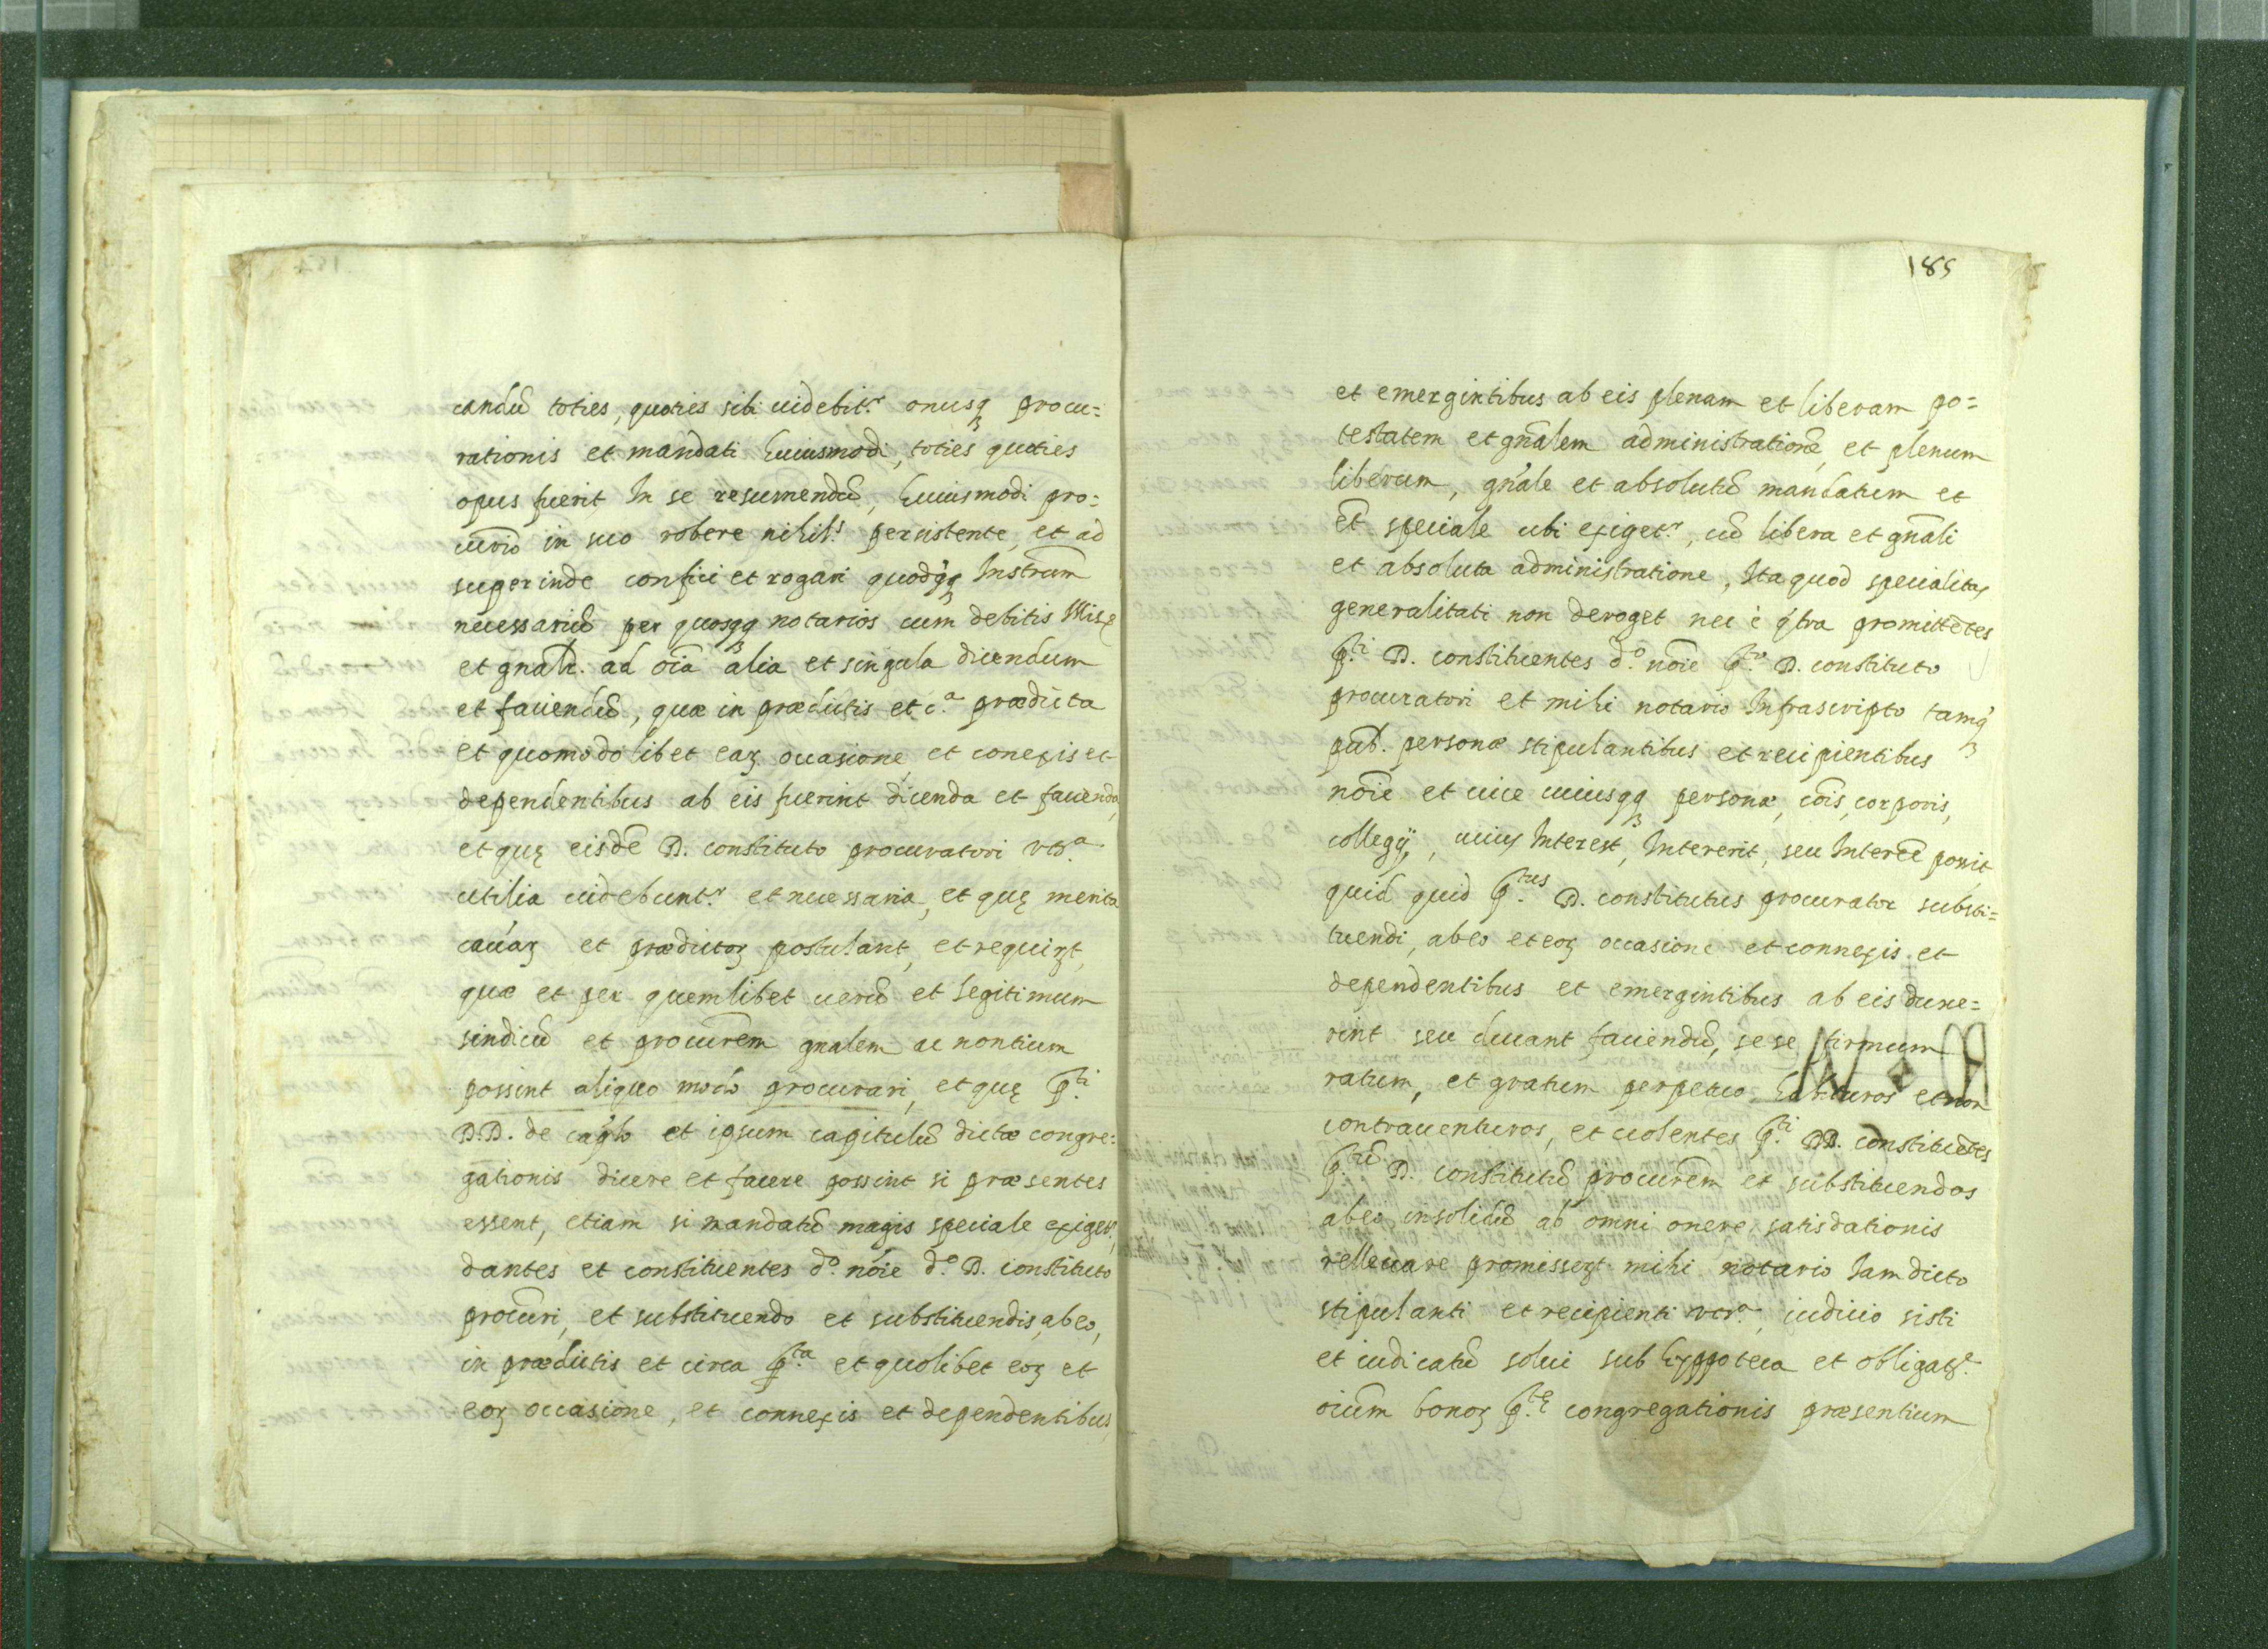 candũ toties, quoties sibi uidebit.r onusq3 procu=
rationis et mandati huiusmodi, toties quoties
opus fuerit In se resumendũ, huiusmodi pro=
in suo robere nihil.s persistente, et ad
superinde confici et rogari Instrum̃
necessariũ per notarios cum debitis
et gnalr. ad oĩa alia et singula dicendum
et faciendũ, quæ in prædictis et c.a prædicta
et quomodo libet eaꝝ occasione, et conexis et
dependentibus ab eis fuerint dicenda et facienda,
et quę eisdẽ D. constituto procuratori vts.a
utilia uidebunt.r et necessaria, et quę merita
cauaꝝ et prædictoꝝ postulant, et requirꝝt,
quæ et per quemlibet uerũ et legitimum
sindicũ et procurẽm gnalem ac nontium
possint aliquo modo procurari, et quę p.ti
D.D. de cap̃lo et ipsum capitulũ dictæ congre=
gationis dicere et facere possint si præsentes
essent, etiam si mandatũ magis speciale exiger.t,
dantes et constituentes d.o nõie d.o D. constituto
procũri, et substituendo et substituendis, ab eo,
in prædictis et circa p.ta et quolibet eoꝝ et
eoꝝ occasione, et connexis et dependentibus,
185
et emergintibus ab eis plenam et liberam po=
testatem et gñalem administrationẽ, et plenum
liberum, gñale et absolutũ mandatum et
et̃ speciale ubi exiget.r, cũ libera et gñali
et absoluta administratione, Ita quod specialitas
generalitati non deroget nec è promittẽtes
p.ti D. constituentes d.o nõie p.to D. constituto
procuratori et mihi notario Infrascripto tamq3
pub. personæ stipulantibus et recipientibus
nõie et uice cuiusqq3 personæ, cõis, corporis,
collegij, cuius Interest, Intererit, seu Interẽe possit,
quid quid p.tus D. constitutus procurator substi=
tuendi, ab eo et eoꝝ occasione et connexis et
dependentibus et emergintibus ab eis duxe=
rint seu ducant faciendũ, se se firmum
ratum, et gratum perpetuo habituros et non
contrauenturos, et uolentes p.ti DD. constituẽtes
p.tũ D. constitutũ procurẽm et substituendos
ab eo insolidũ ab omni onere satisdationis
relleuare promisserꝝt mihi notario Iam dicto
stipulanti et recipienti vts.a, iudicio sisti
et iudicatũ solui sub hyppoteca et obligat.e
oiũm bonoꝝ p.tę congregationis præsentium